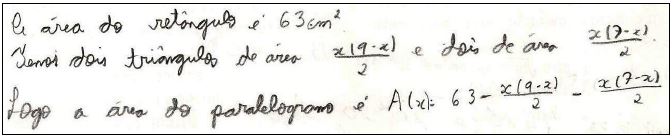 A área do retângulo é 63cm².
Temos dois triângulos de área x(9-x)/2 e dois de área x(7-x)/2
Logo a área do paralelogramo é A(x) = 63 - x(9-x)/2 - x(7-x)/2